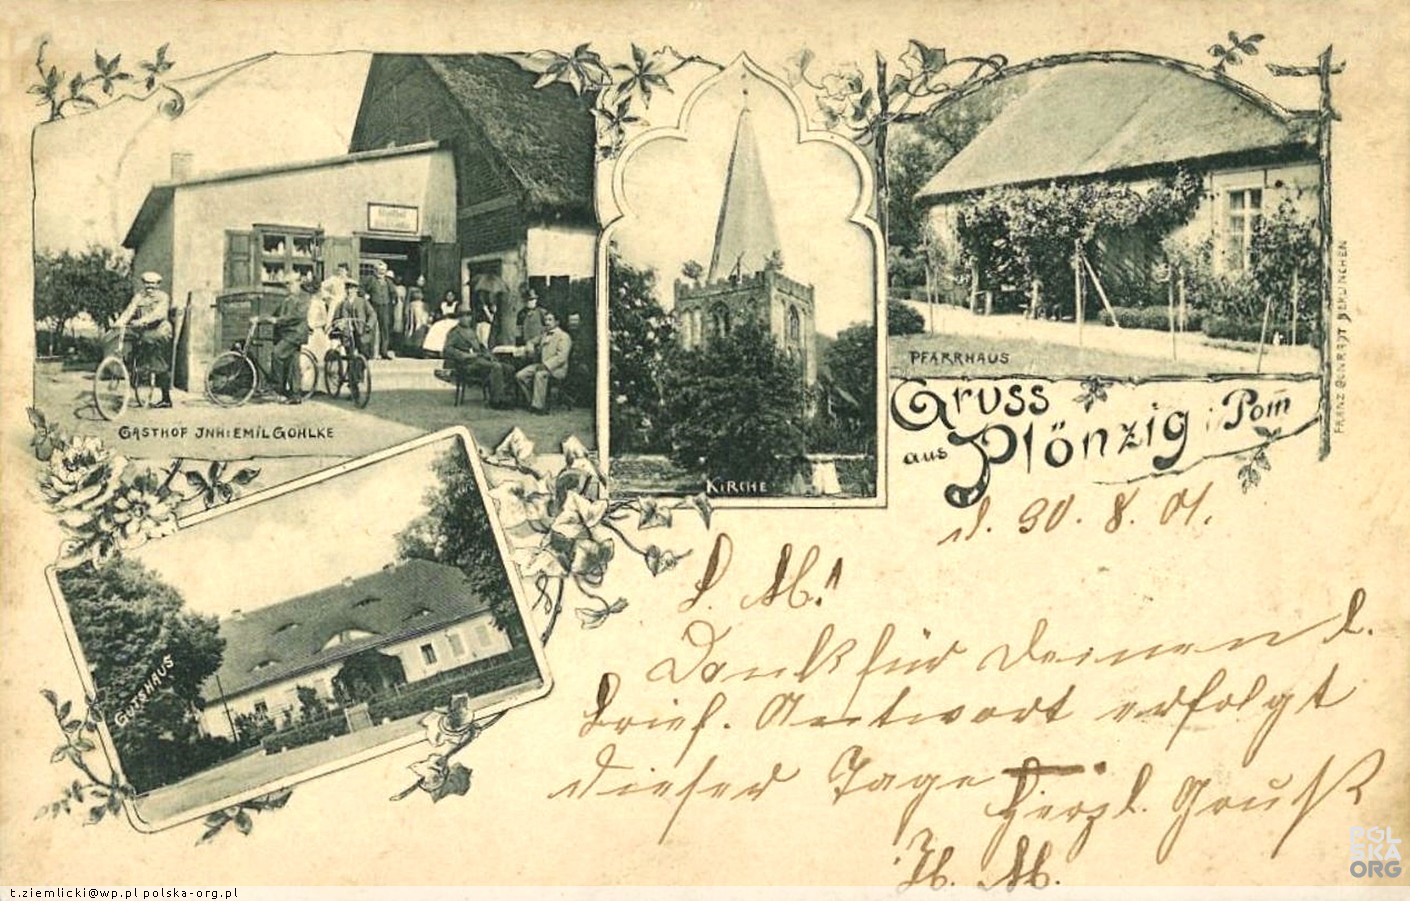 GASTHOF JNH: EMIL GOHLKE
KIRCHE
PFARRHAUS
GUTSHAUS
Gruss
aus Plönzig i. Pom̄
d. 30. 8. 01.
L. M!
Dank für Deinen l.
Brief. Antwort erfolgt
dieser Tage
Herzl. Gruß
M.
POLSKA.ORG
t.ziemlicki@wp.pl polska-org.pl